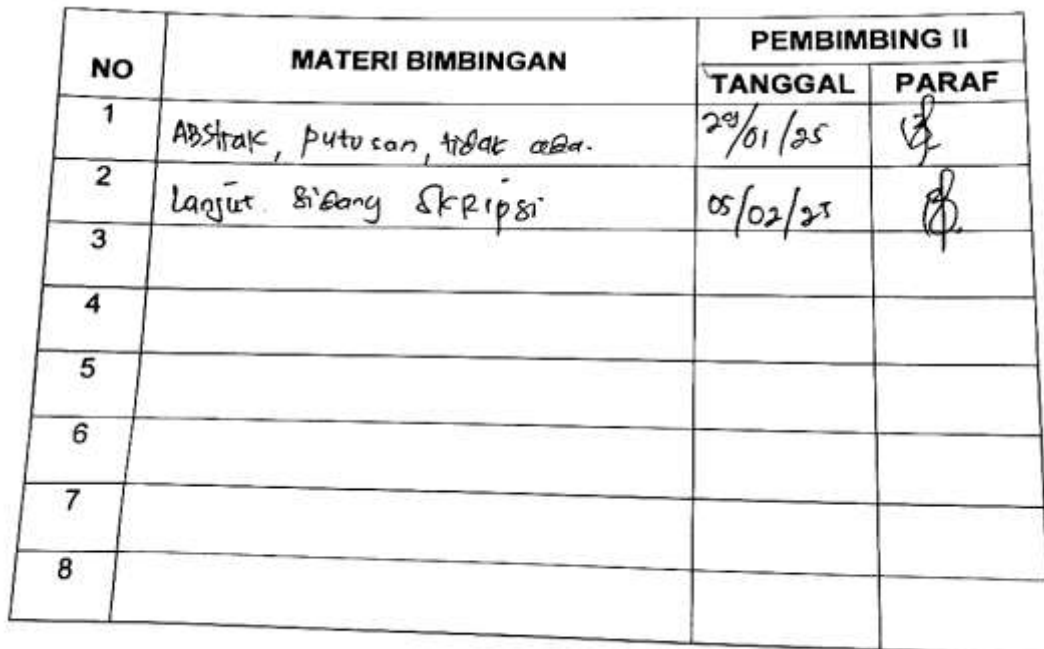 NO MATERI BIMBINGAN PEMBIMBING II
TANGGAL PARAF
1 Abstrak, putusan, tidak ada. 29/01/25
2 Lanjut sidang Skripsi 05/02/25
3
4
5
6
7
8